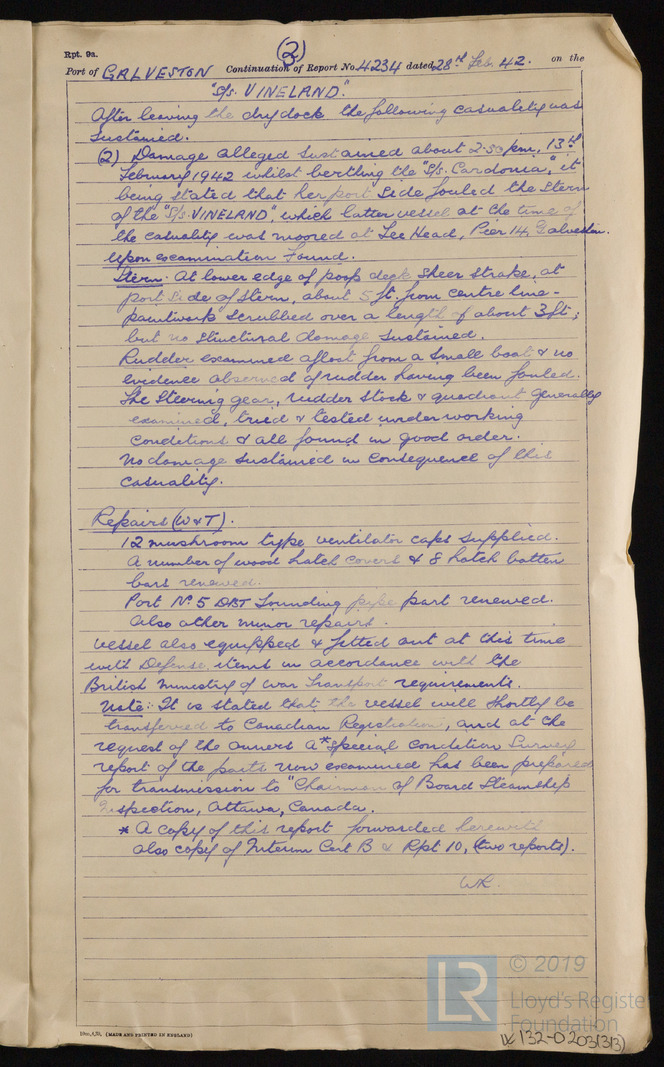 (2)
Rpt. 9a.
Port of GALVESTON Continuation of Report No. 4234 dated 28th Feb. 42. on the
"S/s. VINELAND."
After leaving the drydock the following casuality was
sustained.
(2) Damage alleged sustained about 2.50 pm, 13th
February 1942 whilst berthing the "S/s. Cardonia," it
being stated that her port side fouled the stern
of the "S/s. VINELAND", which latter vessel at the time of
the casuality was moored at Lee Head, Pier 14, Galveston.
Upon examination found.
Stern. At lower edge of poop deck sheer strake, at
port side of stern, about 5 ft. from centre line -
paintwork scrubbed over a length of about 3 ft;
but no structural damage sustained.
Rudder examined afloat from a small boat & no
evidence observed of rudder having been fouled.
The steering gear, rudder stock & quadrant generally
examined, tried & tested under working
conditions & all found in good order.
No damage sustained in consequence of this
casuality.
Repairs (W & T).
12 mushroom type ventilator caps supplied.
A number of wood hatch covers & 8 hatch batten
bars renewed.
Port No. 5 DBT sounding pipe part renewed.
Also other minor repairs.
Vessel also equipped & fitted out at this time
with Defense items in accordance with the
British Ministry of War Transport requirements.
Note: It is stated that the vessel will shortly be
transferred to Canadian Registration, and at the
request of the owners a * special condition Survey
report of the parts now examined has been prepared
for transmission to "Chairman of Board Steamship
Inspection, Ottawa, Canada.
* A copy of this report forwarded herewith
also copy of Interim Cert B & Rpt 10, (two reports).
WR.
(MADE AND PRINTED IN ENGLAND)
LR
© 2019
Lloyd's Register
Foundation
W132-0203(3/3)